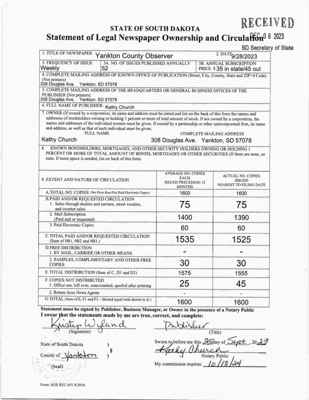 RECEIVED
STATE OF SOUTH DAKOTA
Statement of Legal Newspaper Ownership and Circulation
08 2023
SD Secretary of State
1. TITLE OF NEWSPAPER Yankton County Observer
2. DATE 9/28/2023
3. FREQUENCY OF ISSUE
Weekly
3A. NO. OF ISSUES PUBLISHED ANNUALLY
52
3B. ANNUAL SUBSCRIPTION
PRICE $ 35 in state/45 out
4. COMPLETE MAILING ADDRESS OF KNOWN OFFICE OF PUBLICATION (Street, City, County, State and ZIP+4 Code)
(Not Printers)
308 Douglas Ave. Yankton, SD 57078
5. COMPLETE MAILING ADDRESS OF THE HEADQUARTERS OR GENERAL BUSINESS OFFICES OF THE
PUBLISHER (Not printers)
308 Douglas Ave. Yankton, SD 57078
6. FULL NAME OF PUBLISHER: Kathy Church
7. OWNER (If owned by a corporation, its name and address must be stated and on the back of this form the names and
addresses of stockholders owning or holding 1 percent or more of total amount of stock. If not owned by a corporation, the
names and addresses of the individual owners must be given. If owned by a partnership or other unincorporated firm, its name
and address, as well as that of each individual must be given.
FULL NAME
COMPLETE MAILING ADDRESS
Kathy Church
308 Douglas Ave. Yankton, SD 57078
8. KNOWN BONDHOLDERS, MORTGAGES, AND OTHER SECURITY HOLDERS OWNING OR HOLDING 1
PERCENT OR MORE OF TOTAL AMOUNT OF BONDS, MORTGAGES OR OTHER SECURITIES (If there are none, so
state. If more space is needed, list on back of this form
9. EXTENT AND NATURE OF CIRCULATION
AVERAGE NO. COPIES
EACH
ISSUED PRECEDING 12
MONTHS
ACTUAL NO. COPIES
ISSUED
NEAREST TO FILING DATE
A. TOTAL NO. COPIES (Net Press Run Plus Paid Electronic Copies)
1600
1600
B. PAID AND/OR REQUESTED CIRCULATION
1. Sales through dealers and carriers, street vendors,
and counter sales.
75
75
2. Mail Subscription
(Paid and or requested)
1400
1390
3. Paid Electronic Copies
60
60
C. TOTAL PAID AND/OR REQUESTED CIRCULATION
(Sum of 9B1, 9B2 and 9B3.)
1535
1525
D. FREE DISTRIBUTION
1. BY MAIL, CARRIER OR OTHER MEANS
-
-
2. SAMPLES, COMPLIMENTARY AND OTHER FREE
COPIES
30
30
E. TOTAL DISTRIBUTION (Sum of C, D1 and D2)
1575
1555
F. COPIES NOT DISTRIBUTED
1. Office use, left over, unaccounted, spoiled after printing
25
45
2. Return from News Agents
-
-
G. TOTAL (Sum of E, F1 and F2 - Should equal total shown in A.)
1600
1600
Statement must be signed by Publisher, Business Manager, or Owner in the presence of a Notary Public
I swear that the statements made by me are true, correct, and complete:
Kristin Wyland
Publisher
(Signature)
(Title)
State of South Dakota )
Sworn to before me this 28 day of Sept. 2023
§
County of Yankton )
Kathy Church
Notary Public
(Seal)
My commission expires: 10/13/24